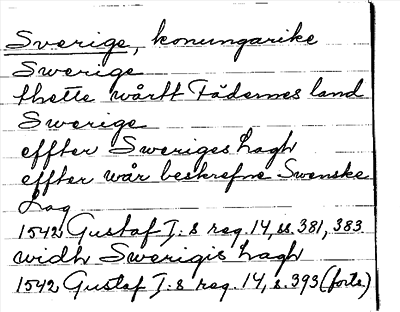 Sverige, konungarike
Swerige
thette wårtt Fädernes land
Swerige
effter Sweriges Lagh
effter wår beskrefne Swenske
Lag
1542 Gustaf I:s reg. 14, ss. 381, 383
widh Swerigis Lagh
1542 Gustaf I:s reg. 14, s. 393 (forts)